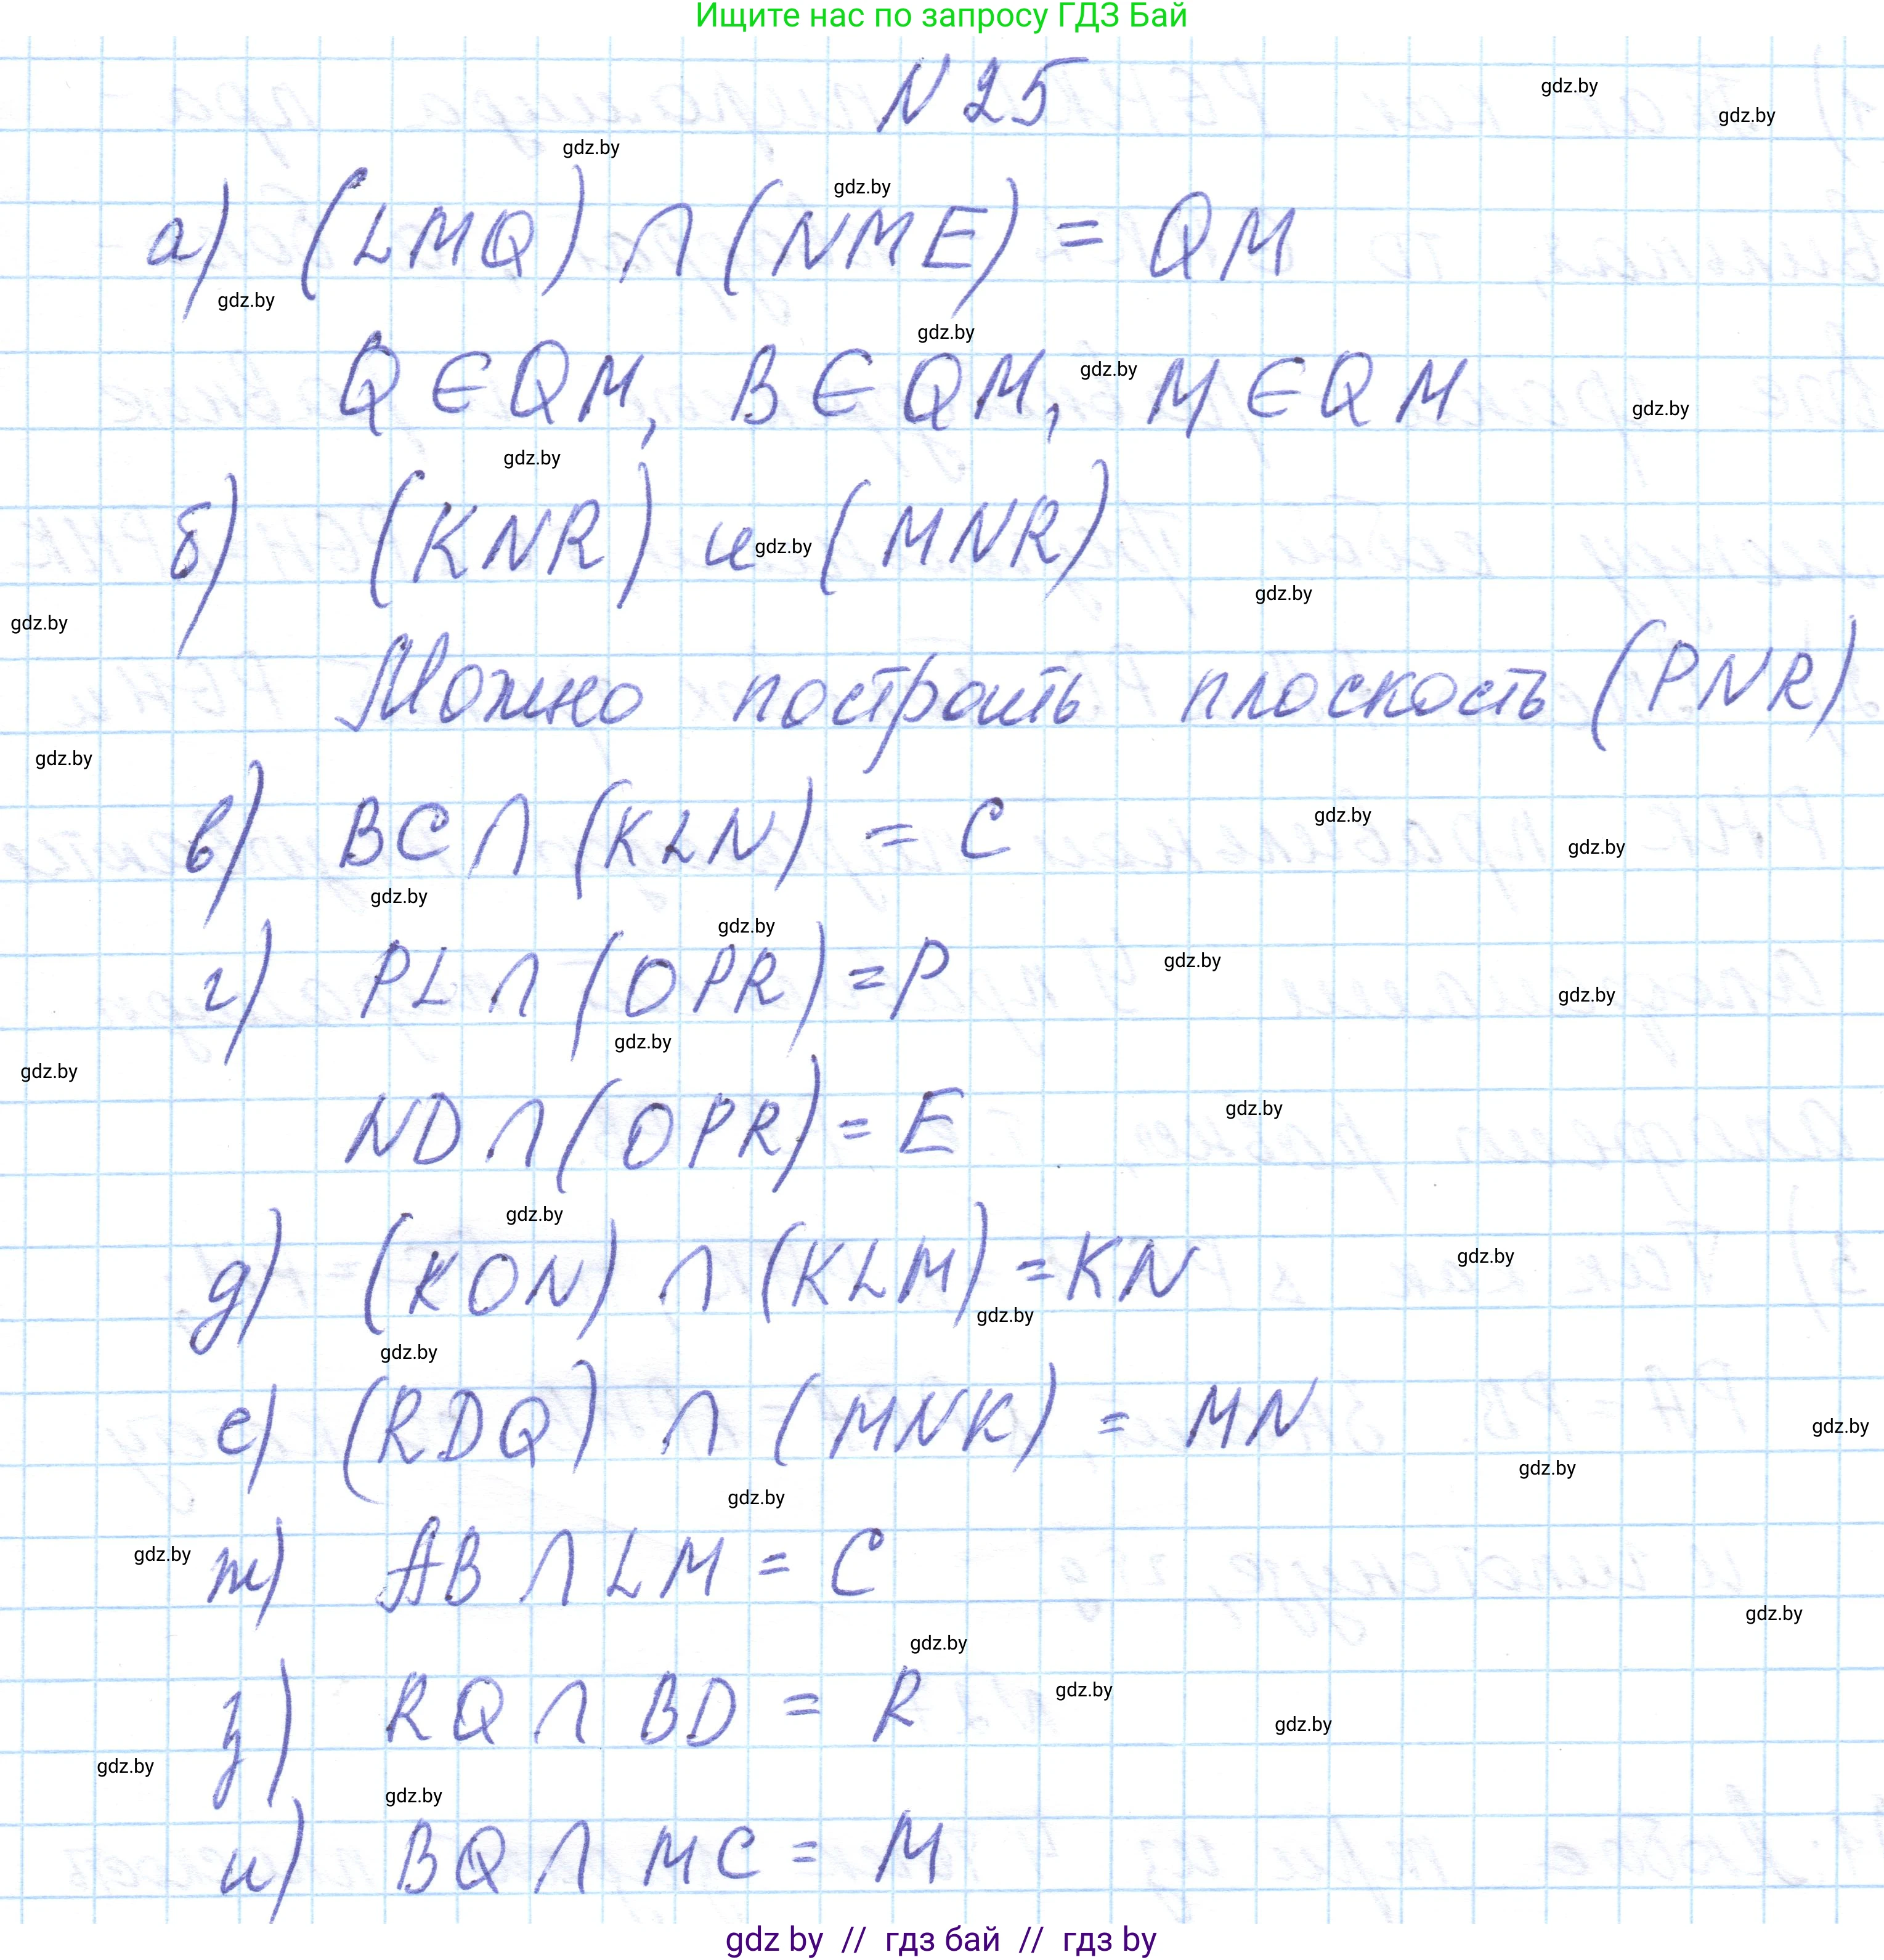 Ищите нас по запросу ГДЗ Бай
N 25
gdz.by
gdz.by
gdz.by
gdz.by
а) (LMQ) ∩ (NME) = QM
gdz.by
gdz.by
Q ∈ QM, B ∈ QM, M ∈ QM
gdz.by
gdz.by
gdz.by
б) (KNR) и (MNR)
gdz.by
gdz.by
gdz.by
Можно построить плоскость (PNR)
gdz.by
в) BC ∩ (KLN) = C
gdz.by
gdz.by
gdz.by
gdz.by
г) PL ∩ (OPR) = P
gdz.by
gdz.by
gdz.by
gdz.by
ND ∩ (OPR) = E
gdz.by
gdz.by
д) (KON) ∩ (KLM) = KN
gdz.by
gdz.by
gdz.by
е) (RDQ) ∩ (MNK) = MN
gdz.by
gdz.by
gdz.by
ж) AB ∩ LM = C
gdz.by
gdz.by
gdz.by
з) RQ ∩ BD = R
gdz.by
gdz.by
gdz.by
gdz.by
и) BQ ∩ MC = M
gdz by // гдз бай // гдз by